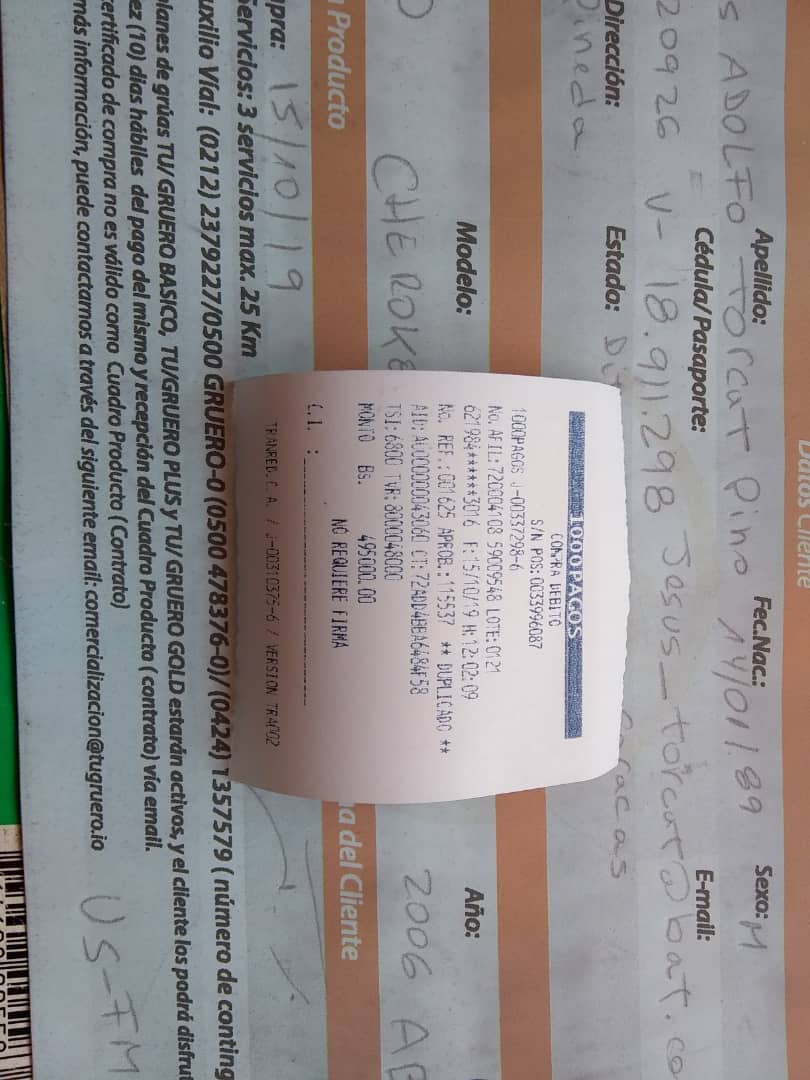 Datos Cliente
Apellido: Fec.Nac.: Sexo: M
ADOLFO Torcat Pino 14/01/.89
Cédula/Pasaporte: E-mail:
20926 V- 18.911.298 Jesus_torcat@bat.co
Dirección: Estado:
Pineda, Caracas
Modelo: Año:
CHEROKE 2006 AB
Producto a del Cliente
pra: 15/10/19
Servicios: 3 servicios max. 25 Km
uxilio Vial: (0212) 2379227/0500 GRUERO-0 (0500 478376-0)/ (0424) 1357579 ( número de conting
lanes de grúas TU/ GRUERO BASICO, TU/GRUERO PLUS y TU/ GRUERO GOLD estarán activos, y el cliente los podrá disfrut
ez (10) días hábiles del pago del mismo y recepción del Cuadro Producto ( contrato) vía email.
certificado de compra no es válido como Cuadro Producto ( Contrato)
más información, puede contactarnos a través del siguiente email: comercializacion@tugruero.io
US-FM
1000PAGOS
COMPRA DEBITO
S/N POS: 0033996087
1000PAGOS J-00337298-6
No. AFIL: 720004108 59009548 LOTE: 0121
621984******3016 F: 15/10/19 H: 12:02:09
No. REF.: 001625 APROB.: 115537 ** DUPLICADO **
AID: A0000000043060 CT: 72ADD4BBA6484F58
TSI: 6800 TVR: 8000048000
MONTO Bs. 495000.00
NO REQUIERE FIRMA
C.I. :
TRANRED C.A. / J-00310375-6 / VERSION TR4002